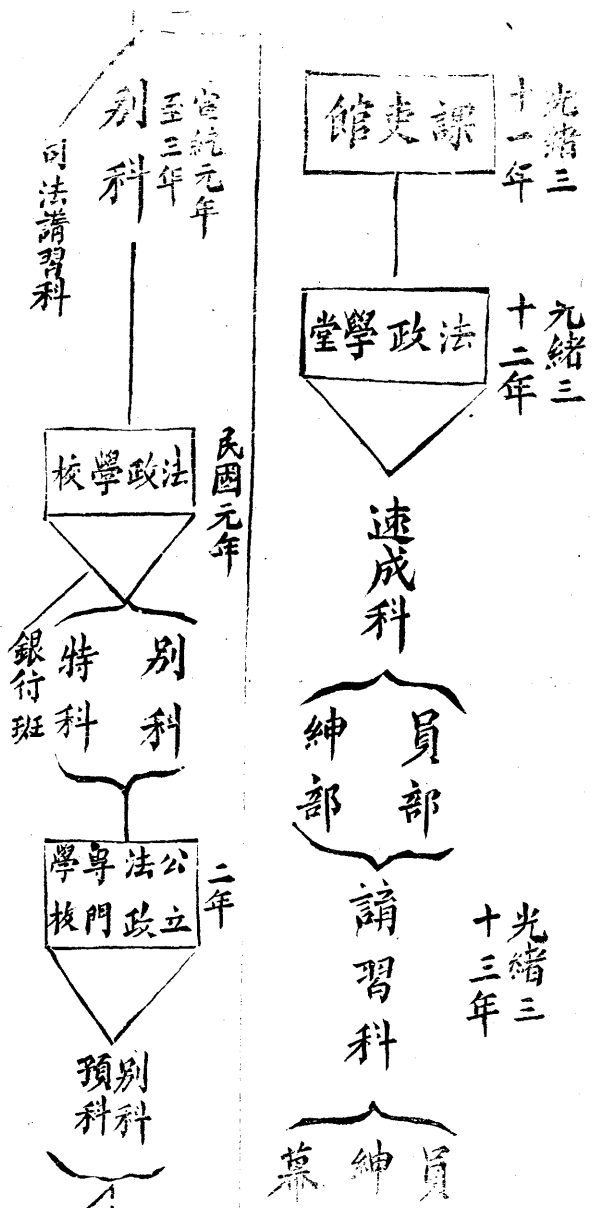 光緒三
十一年
課吏館
光緒三
十二年
法政學堂
速成科
員部
紳部
光緒三
十三年
講習科
員
紳
幕
宣統元年
至三年
別科
司法講習科
民國元年
法政學校
別科
特科
銀行班
二年
公立
法政
專門
學校
別科
預科